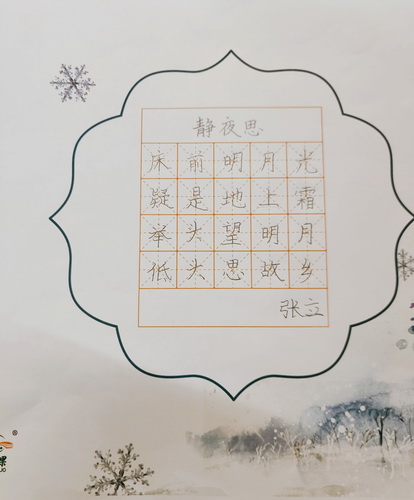 静夜思
床前明月光
疑是地上霜
举头望明月
低头思故乡
张立